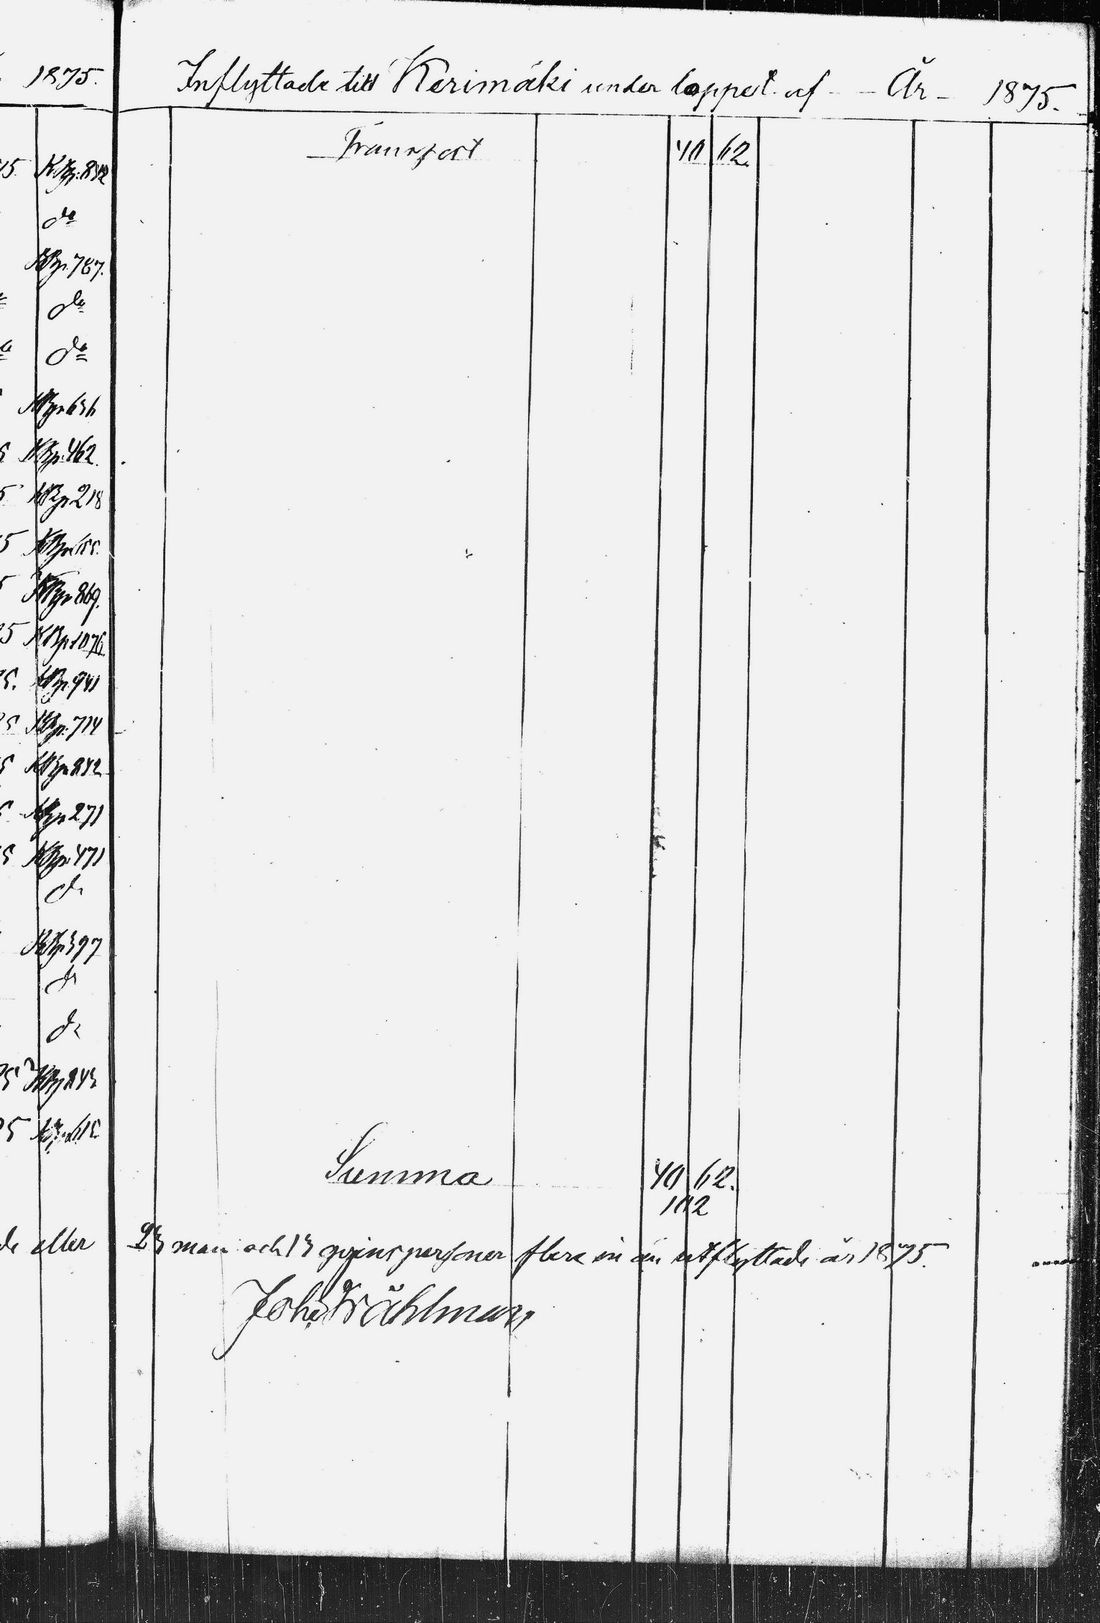 1875.
K.Bp. 842
do
KBp. 787.
do
do
KBp 636
KBp. 462.
KBp 218
KBp 155.
KBp 869.
KBp 1076
KBp. 941
KBp. 714
KBp 842
KBp 271
KBp 471
do
KBp 397
do
do
KBp 843
KBp 615
eller
Inflyttade till Kerimäki under loppet af - - År - 1875.
Transport 40 62.
Summa 40 62.
102
23 man och 13 qvinspersoner flera in än utflyttade år 1875.
Joh. Krählman